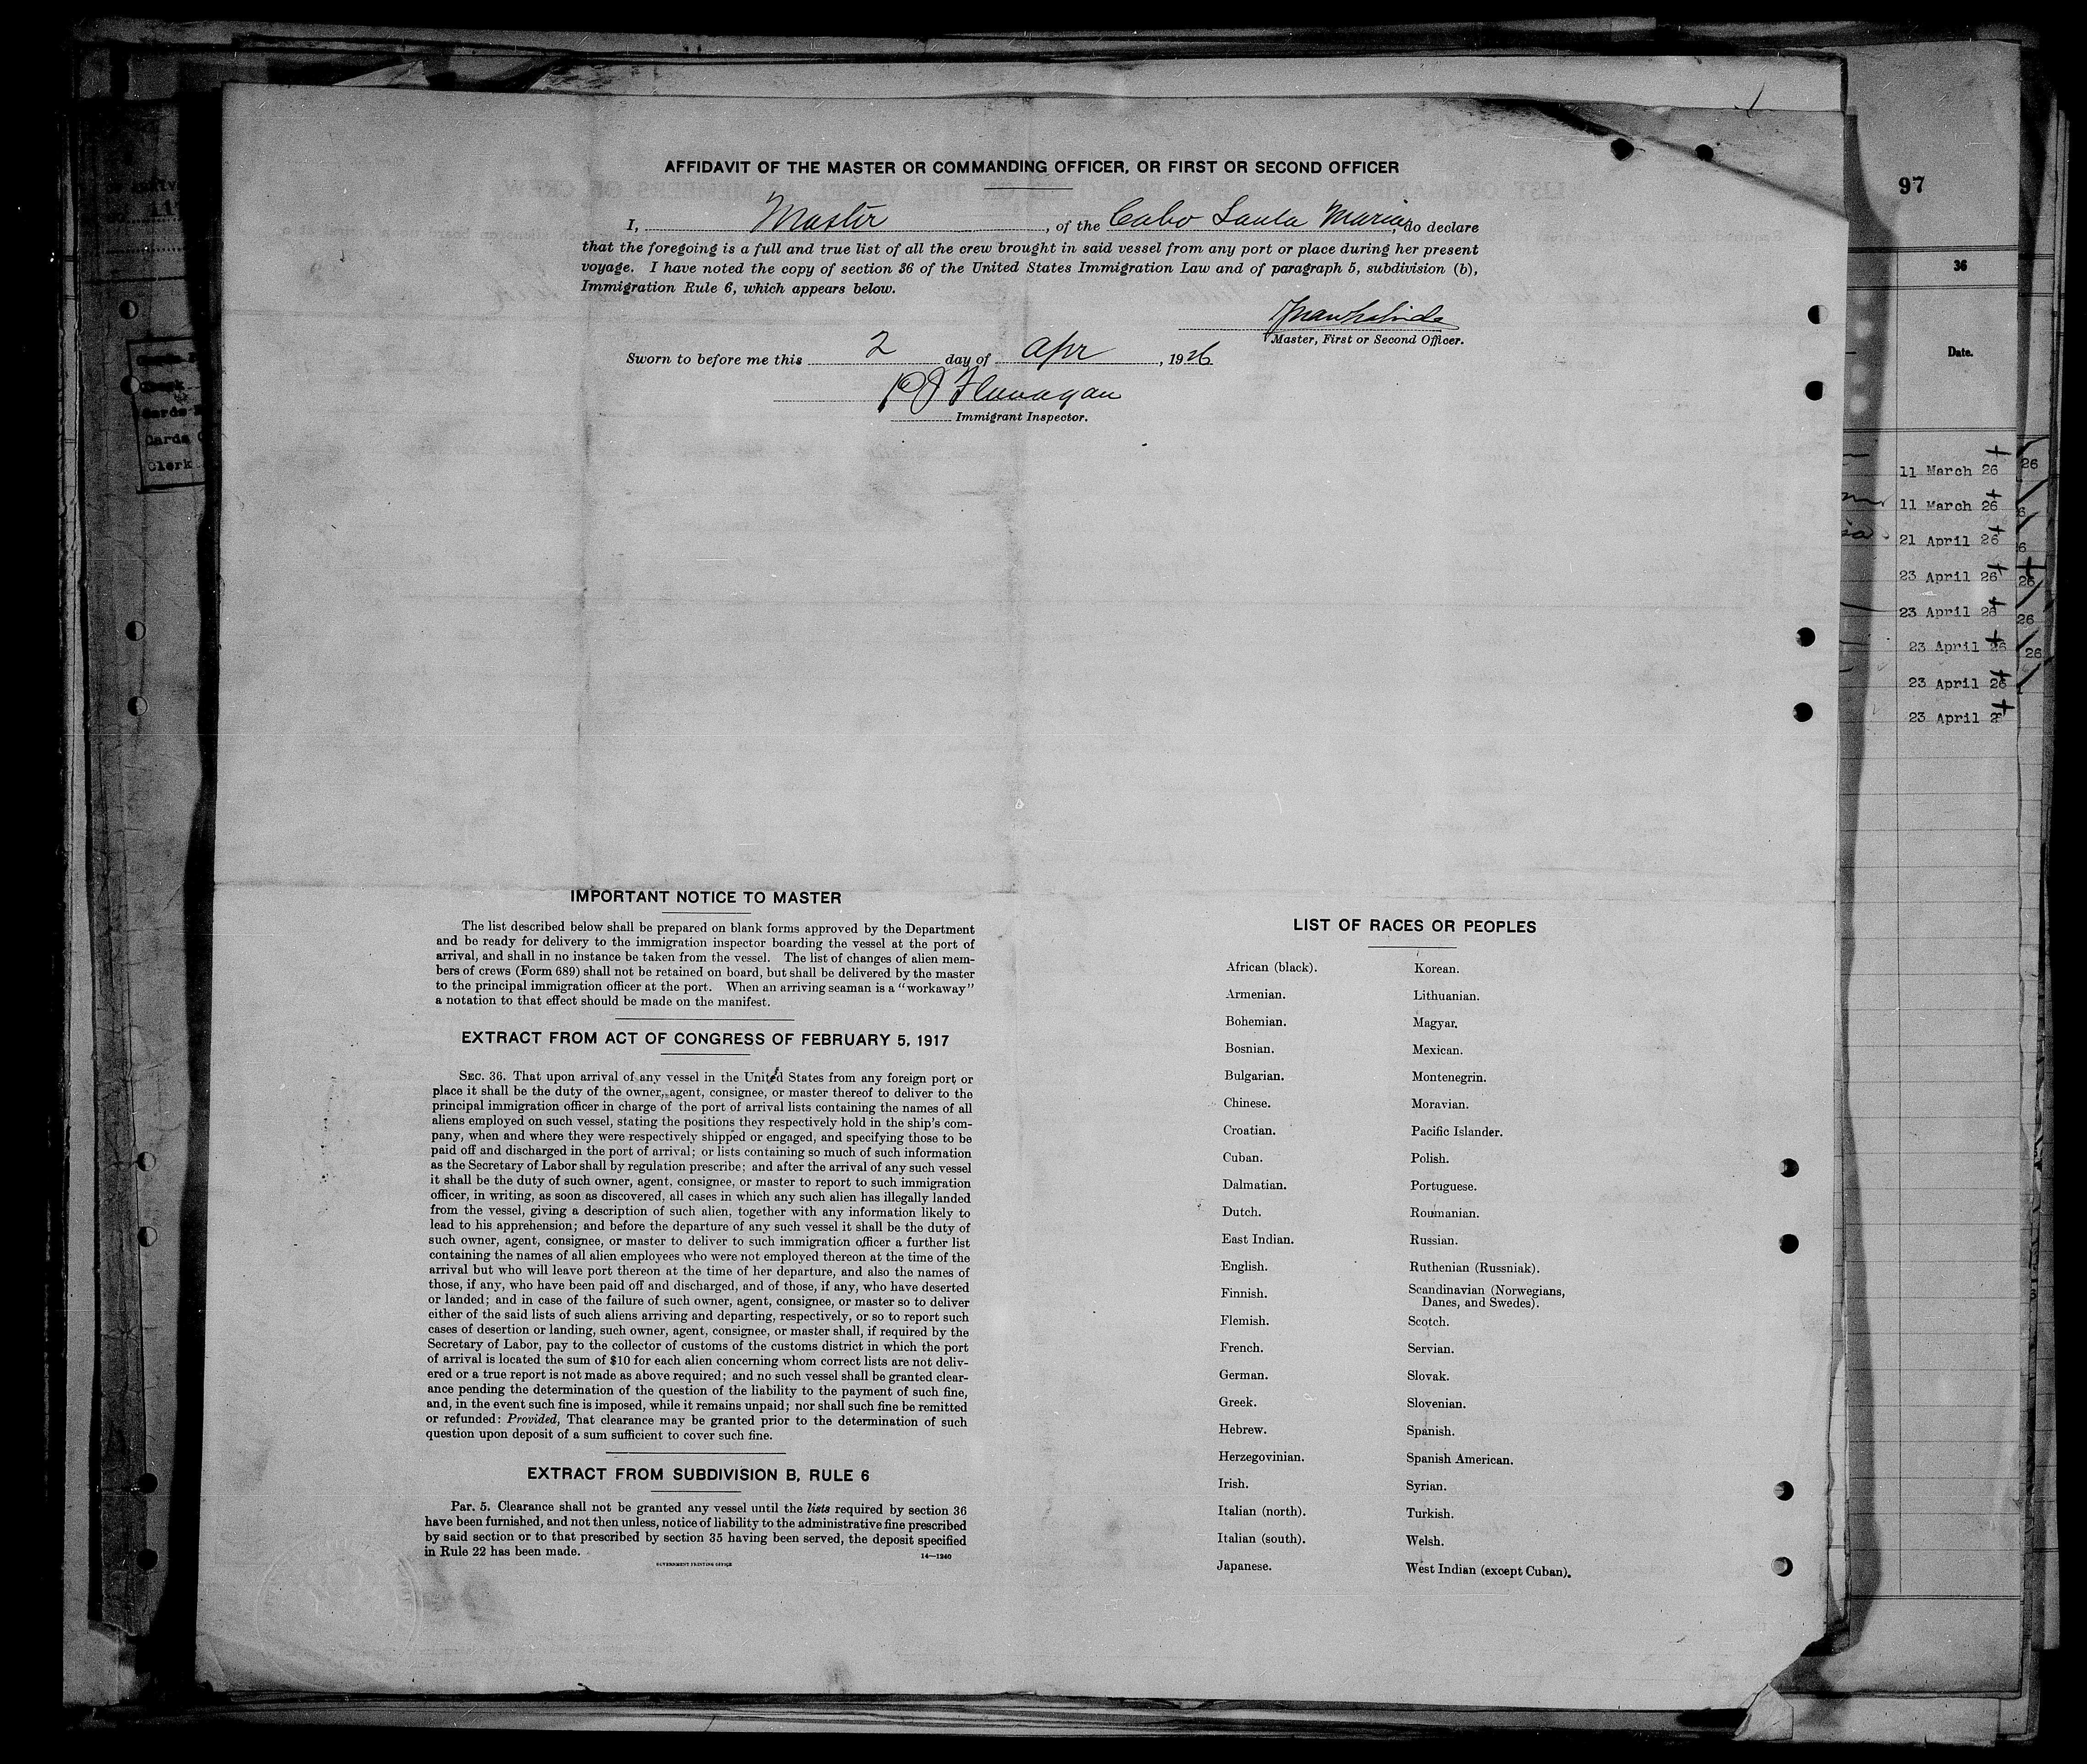 AFFIDAVIT OF THE MASTER OR COMMANDING OFFICER, OR FIRST OR SECOND OFFICER
I, Master, of the Cabo Santa Maria, do declare
that the foregoing is a full and true list of all the crew brought in said vessel from any port or place during her present
voyage. I have noted the copy of section 36 of the United States Immigration Law and of paragraph 5, subdivision (b),
Immigration Rule 6, which appears below.
Master, First or Second Officer.
Sworn to before me this 2 day of Apr, 1926
Flanagan
Immigrant Inspector.
IMPORTANT NOTICE TO MASTER
The list described below shall be prepared on blank forms approved by the Department
and be ready for delivery to the immigration inspector boarding the vessel at the port of
arrival, and shall in no instance be taken from the vessel. The list of changes of alien mem-
bers of crews (Form 689) shall not be retained on board, but shall be delivered by the master
to the principal immigration officer at the port. When an arriving seaman is a "workaway"
a notation to that effect should be made on the manifest.
EXTRACT FROM ACT OF CONGRESS OF FEBRUARY 5, 1917
SEC. 36. That upon arrival of any vessel in the United States from any foreign port or
place it shall be the duty of the owner, agent, consignee, or master thereof to deliver to the
principal immigration officer in charge of the port of arrival lists containing the names of all
aliens employed on such vessel, stating the positions they respectively hold in the ship's com-
pany, when and where they were respectively shipped or engaged, and specifying those to be
paid off and discharged in the port of arrival; or lists containing so much of such information
as the Secretary of Labor shall by regulation prescribe; and after the arrival of any such vessel
it shall be the duty of such owner, agent, consignee, or master to report to such immigration
officer, in writing, as soon as discovered, all cases in which any such alien has illegally landed
from the vessel, giving a description of such alien, together with any information likely to
lead to his apprehension; and before the departure of any such vessel it shall be the duty of
such owner, agent, consignee, or master to deliver to such immigration officer a further list
containing the names of all alien employees who were not employed thereon at the time of the
arrival but who will leave port thereon at the time of her departure, and also the names of
those, if any, who have been paid off and discharged, and of those, if any, who have deserted
or landed; and in case of the failure of such owner, agent, consignee, or master so to deliver
either of the said lists of such aliens arriving and departing, respectively, or so to report such
cases of desertion or landing, such owner, agent, consignee, or master shall, if required by the
Secretary of Labor, pay to the collector of customs of the customs district in which the port
of arrival is located the sum of $10 for each alien concerning whom correct lists are not deliv-
ered or a true report is not made as above required; and no such vessel shall be granted clear-
ance pending the determination of the question of the liability to the payment of such fine,
and, in the event such fine is imposed, while it remains unpaid; nor shall such fine be remitted
or refunded: Provided, That clearance may be granted prior to the determination of such
question upon deposit of a sum sufficient to cover such fine.
EXTRACT FROM SUBDIVISION B, RULE 6
Par. 5. Clearance shall not be granted any vessel until the lists required by section 36
have been furnished, and not then unless, notice of liability to the administrative fine prescribed
by said section or to that prescribed by section 35 having been served, the deposit specified
in Rule 22 has been made.
14—1240
GOVERNMENT PRINTING OFFICE
LIST OF RACES OR PEOPLES
African (black).
Armenian.
Bohemian.
Bosnian.
Bulgarian.
Chinese.
Croatian.
Cuban.
Dalmatian.
Dutch.
East Indian.
English.
Finnish.
Flemish.
French.
German.
Greek.
Hebrew.
Herzegovinian.
Irish.
Italian (north).
Italian (south).
Japanese.
Korean.
Lithuanian.
Magyar.
Mexican.
Montenegrin.
Moravian.
Pacific Islander.
Polish.
Portuguese.
Roumanian.
Russian.
Ruthenian (Russniak).
Scandinavian (Norwegians,
Danes, and Swedes).
Scotch.
Servian.
Slovak.
Slovenian.
Spanish.
Spanish American.
Syrian.
Turkish.
Welsh.
West Indian (except Cuban).
97
36
Date.
11 March 26
11 March 26
21 April 26
23 April 26
23 April 26
23 April 26
23 April 26
23 April
Clerk